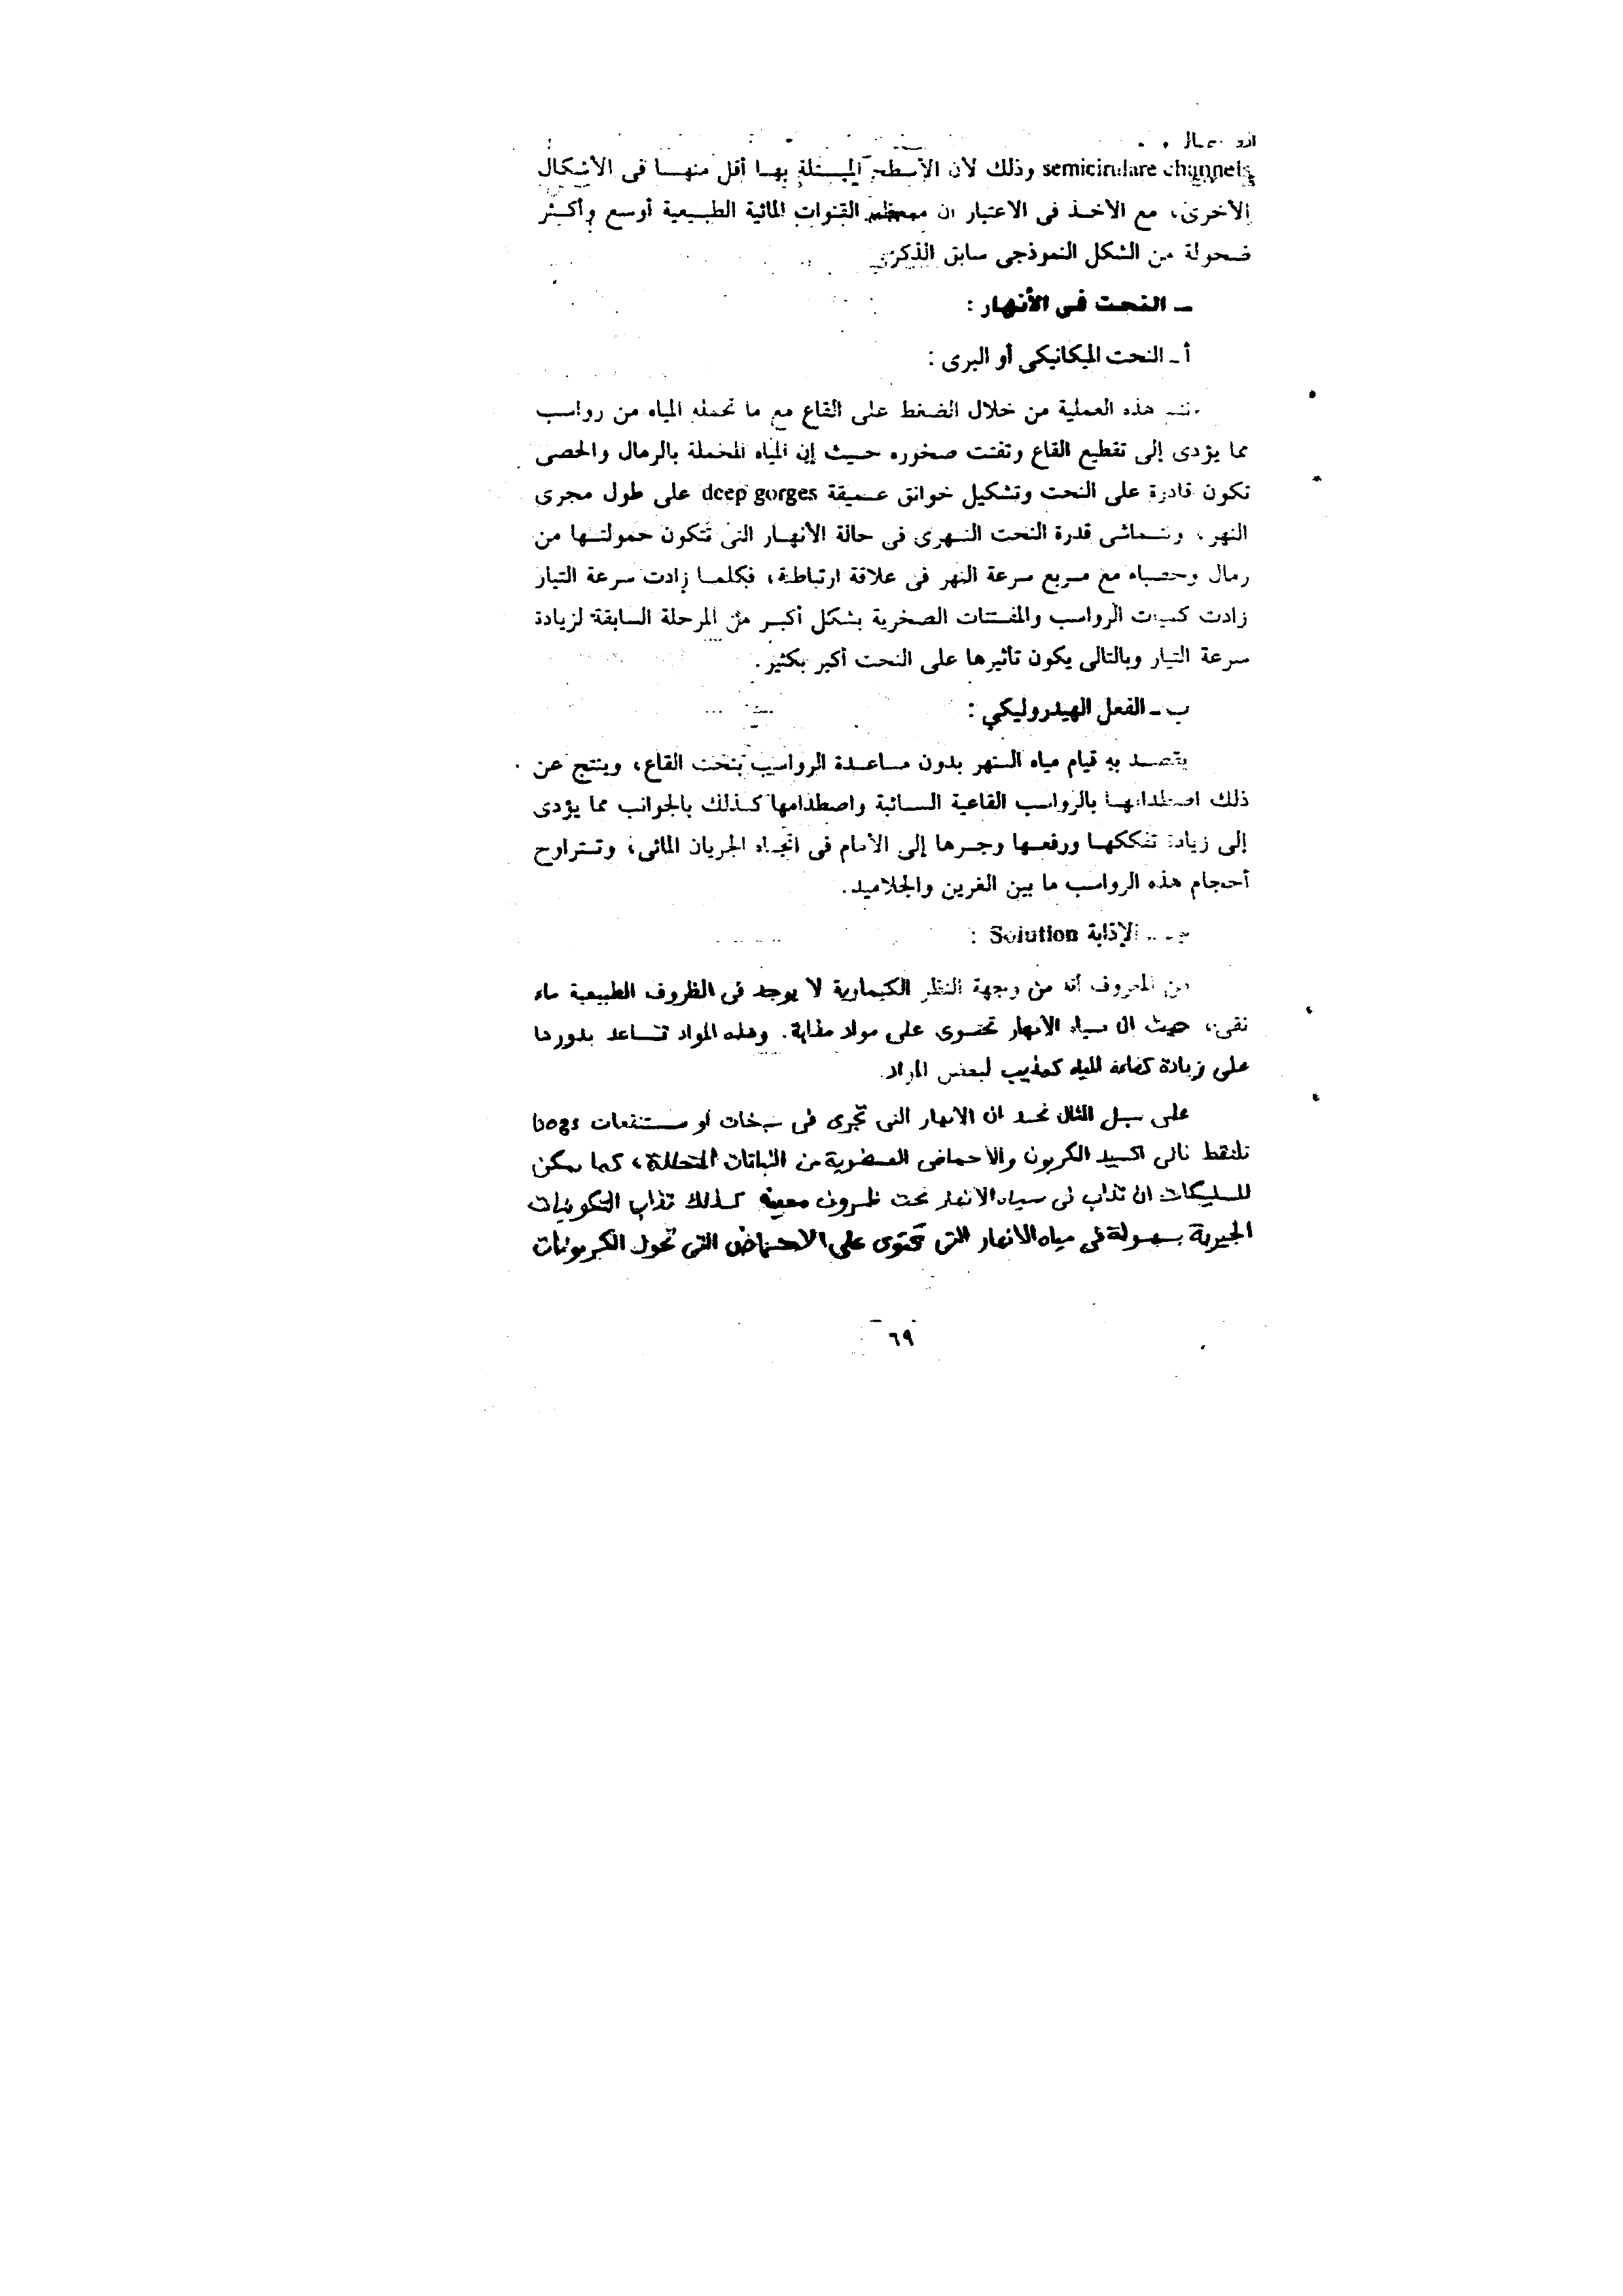 semicirulare channels وذلك لأن الأسطح المبتلة بها أقل منها فى الأشكال
الأخرى، مع الأخذ فى الاعتبار أن معظم القنوات المائية الطبيعية أوسع وأكثر
ضحولة من الشكل النموذجى سابق الذكر.
ـ النحت فى الأنهار :
أ ـ النحت الميكانيكى أو البرى :
تتم هذه العملية من خلال الضغط على القاع مع ما تحمله المياه من رواسب
مما يؤدى إلى تقطيع القاع وتفتت صخوره حيث إن المياه المحملة بالرمال والحصى
تكون قادرة على النحت وتشكيل خوانق عميقة deep gorges على طول مجرى
النهر، وتتماشى قدرة النحت النهرى فى حالة الأنهار التى تتكون حمولتها من
رمال وحصباء مع مربع سرعة النهر فى علاقة ارتباطية، فكلما زادت سرعة التيار
زادت كميات الرواسب والمفتتات الصخرية بشكل أكبر من المرحلة السابقة لزيادة
سرعة التيار وبالتالى يكون تأثيرها على النحت أكبر بكثير.
ب ـ الفعل الهيدروليكي :
يقصد به قيام مياه النهر بدون مساعدة الرواسب بنحت القاع، وينتج عن
ذلك اصطدامها بالرواسب القاعية السائبة واصطدامها كذلك بالجوانب مما يؤدى
إلى زيادة تفككها ورفعها وجرها إلى الأمام فى اتجاه الجريان المائى، وتتراوح
أحجام هذه الرواسب ما بين الغرين والجلاميد.
جـ ـ الإذابة Solution :
من المعروف أنه من وجهة النظر الكيماوية لا يوجد فى الظروف الطبيعية ماء
نقى، حيث ان مياه الأنهار تحتوى على مواد مذابة. وهذه المواد تساعد بدورها
على زيادة كفاءة المياه كمذيب لبعض المواد.
على سبيل المثال نجد ان الانهار التى تجرى فى سبخات او مستنقعات bogs
تلتقط ثانى اكسيد الكربون والاحماض العضوية من النباتات المتحللة، كما يمكن
للسليكات ان تذاب فى مياه الانهار تحت ظروف معينة كذلك تذاب التكوينات
الجيرية بسهولة فى مياه الانهار التى تحتوى على الاحماض التى تحول الكربونات
٦٩